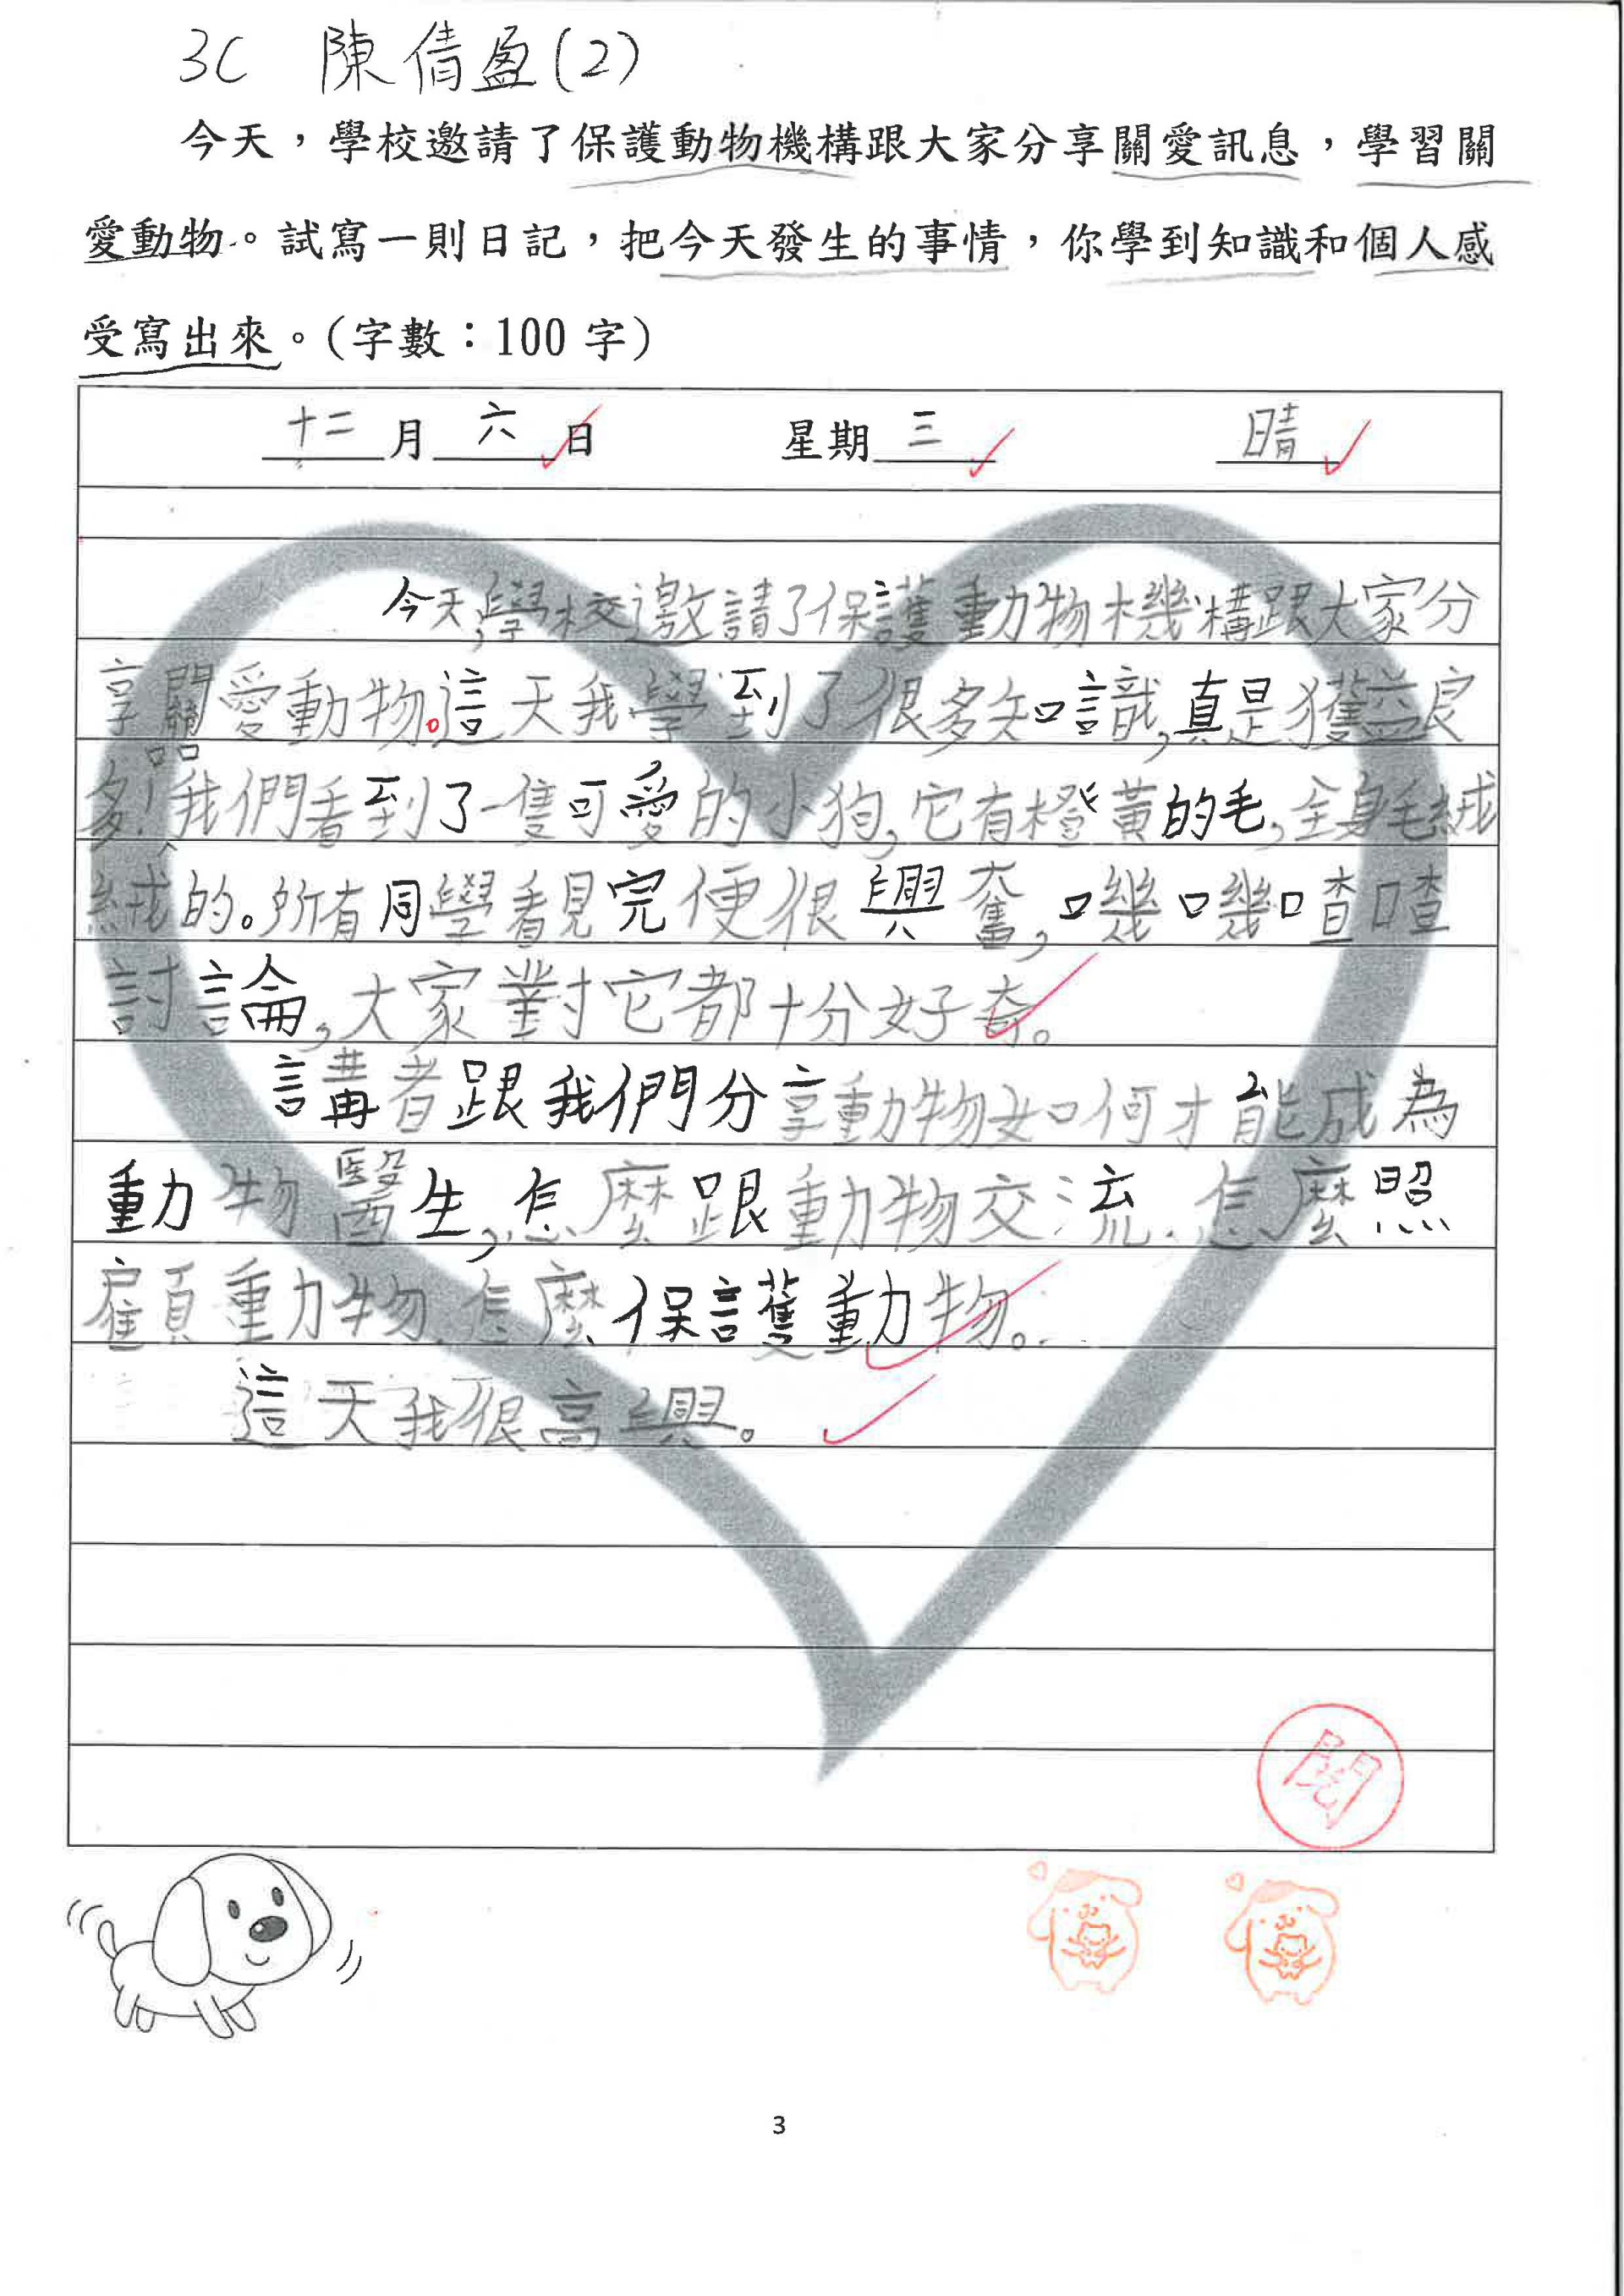 3C 陳倩盈(2)
今天，學校邀請了保護動物機構跟大家分享關愛訊息，學習關
愛動物。試寫一則日記，把今天發生的事情，你學到知識和個人感
受寫出來。(字數：100 字)
十二月六日 星期三 晴
今天,學校邀請了保護動物機構跟大家分
享關愛動物。這天我學到了很多知識,真是獲益良
多!我們看到了一隻可愛的小狗,它有橙黃的毛,全身毛絨
絨的。所有同學看見完便很興奮,嘰嘰喳喳
討論,大家對它都十分好奇。
講者跟我們分享動物如何才能成為
動物醫生,怎麼跟動物交流、怎麼照
顧動物、怎麼保護動物。
這天我很高興。
閱
3